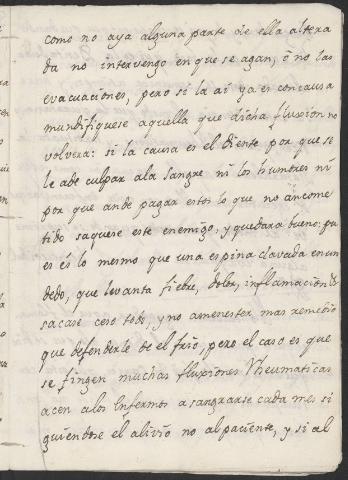 como no aya alguna parte de ella altera
da no intervengo en que se agan, ò no las
evacuaciones, pero si la ai ya es con causa
mundifiquese aquella que dicha fluxion no
volvera: si la causa es el diente por que se
le a de culpar a la sangre ni los humores ni
por que an de pagar estos lo que no an come
tido saquese este enemigo, y quedara bueno: pu
es es lo mesmo que una espina clavada en un
dedo, que levanta fiebre, dolor, inflamacion &
sacase ceso todo, y no amenester mas remedio
que defenderle de el frio, pero el caso es que
se fingen muchas fluxiones Rheumaticas
acen a los Enfermos a sangrarse cada mes si
guiendose el alivio no al paciente, y si al